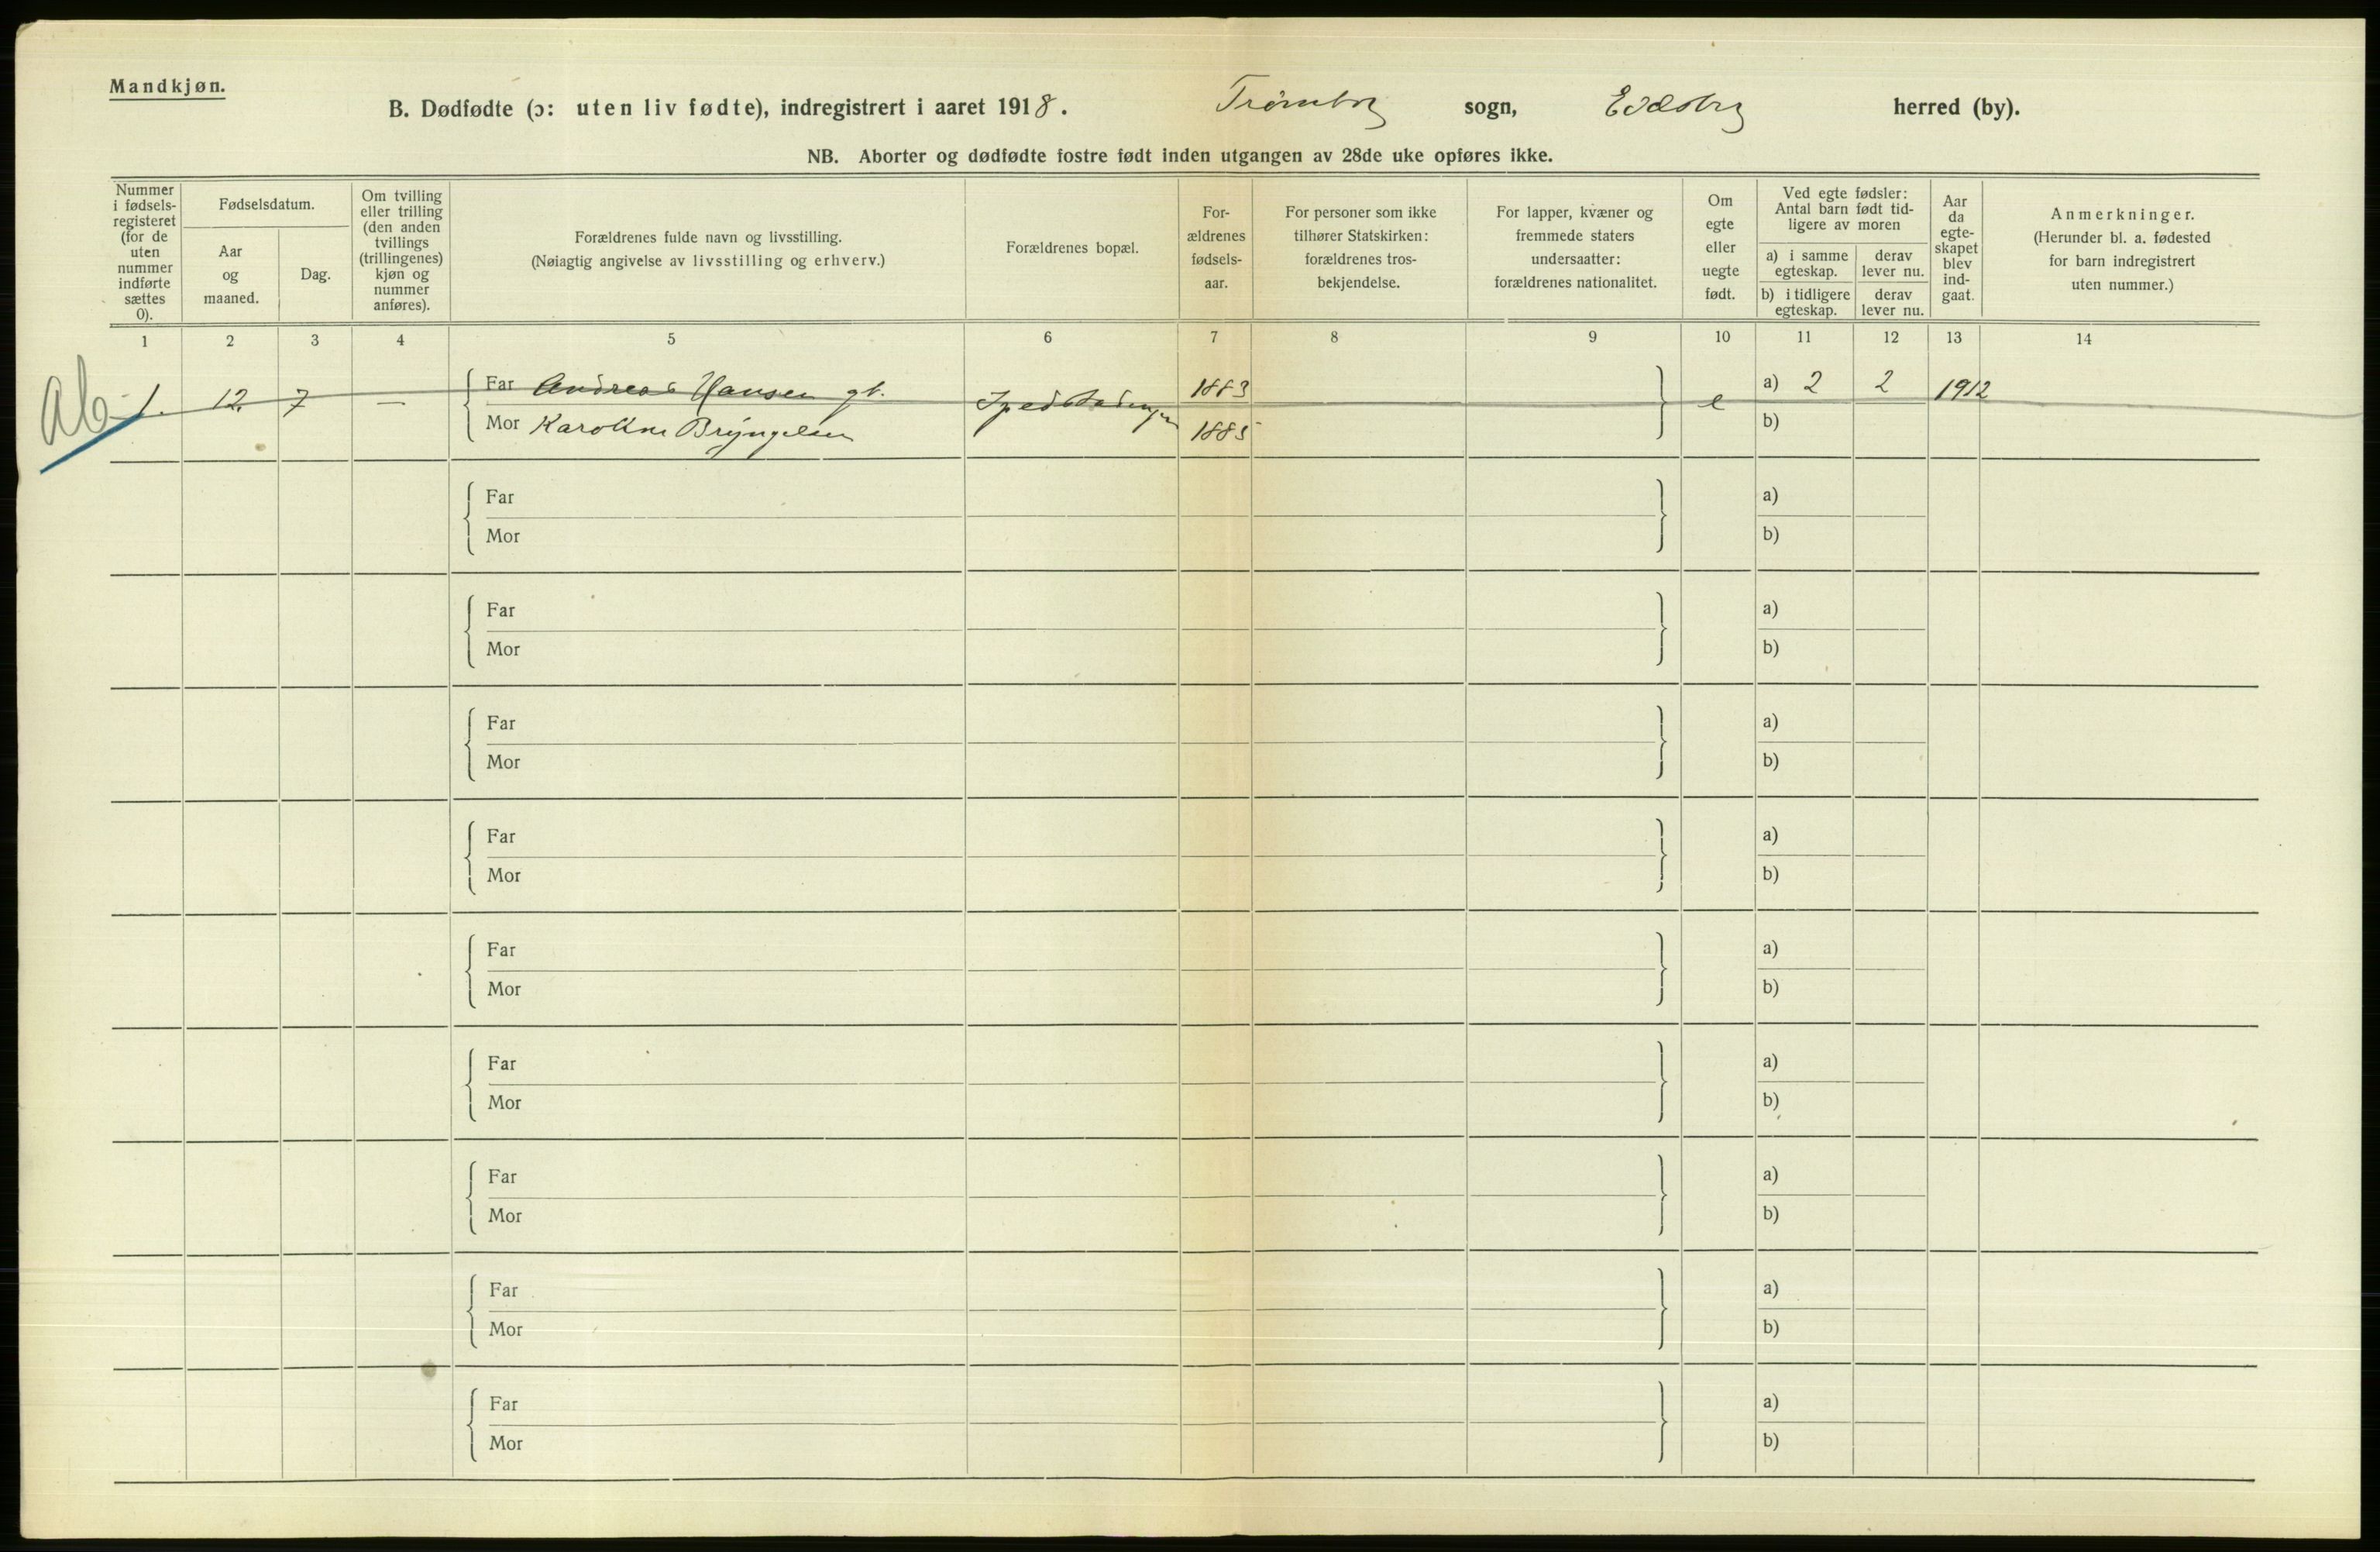 Mandkjøn.
B. Dødfødte (ɔ: uten liv fødte), indregistrert i aaret 1918. Trømborg sogn, Eidsberg herred (by).
NB. Aborter og dødfødte fostre født inden utgangen av 28de uke opføres ikke.
Nummer
i fødsels-
registeret
(for de
uten
nummer
indførte
sættes
0).
Fødselsdatum.
Aar
og
maaned.
Dag.
Om tvilling
eller trilling
(den anden
tvillings
(trillingenes)
kjøn og
nummer
anføres).
Forældrenes fulde navn og livsstilling.
(Nøiagtig angivelse av livsstilling og erhverv.)
Forældrenes bopæl.
For-
ældrenes
fødsels-
aar.
For personer som ikke
tilhører Statskirken:
forældrenes tros-
bekjendelse.
For lapper, kvæner og
fremmede staters
undersaatter:
forældrenes nationalitet.
Om
egte
eller
uegte
født.
Ved egte fødsler:
Antal barn født tid-
ligere av moren
a) i samme
egteskap.
derav
lever nu.
b) i tidligere
egteskap.
derav
lever nu.
Aar
da
egte-
skapet
blev
ind-
gaat.
Anmerkninger.
(Herunder bl. a. fødested
for barn indregistrert
uten nummer.)
1 2 3 4 5 6 7 8 9 10 11 12 13 14
Ab 1. 12. 7 — Far Andreas Hansen gb. 1883 e a) 2 2 1912
Mor Karoline Bryngelsen 1885 b)
Far a)
Mor b)
Far a)
Mor b)
Far a)
Mor b)
Far a)
Mor b)
Far a)
Mor b)
Far a)
Mor b)
Far a)
Mor b)
Far a)
Mor b)
Far a)
Mor b)